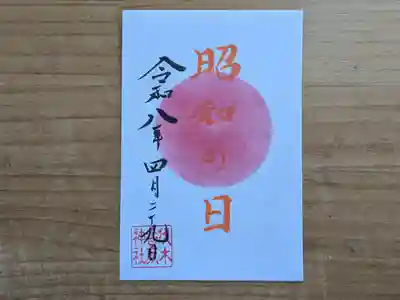 昭和の日
令和八年四月二十九日
木
神社